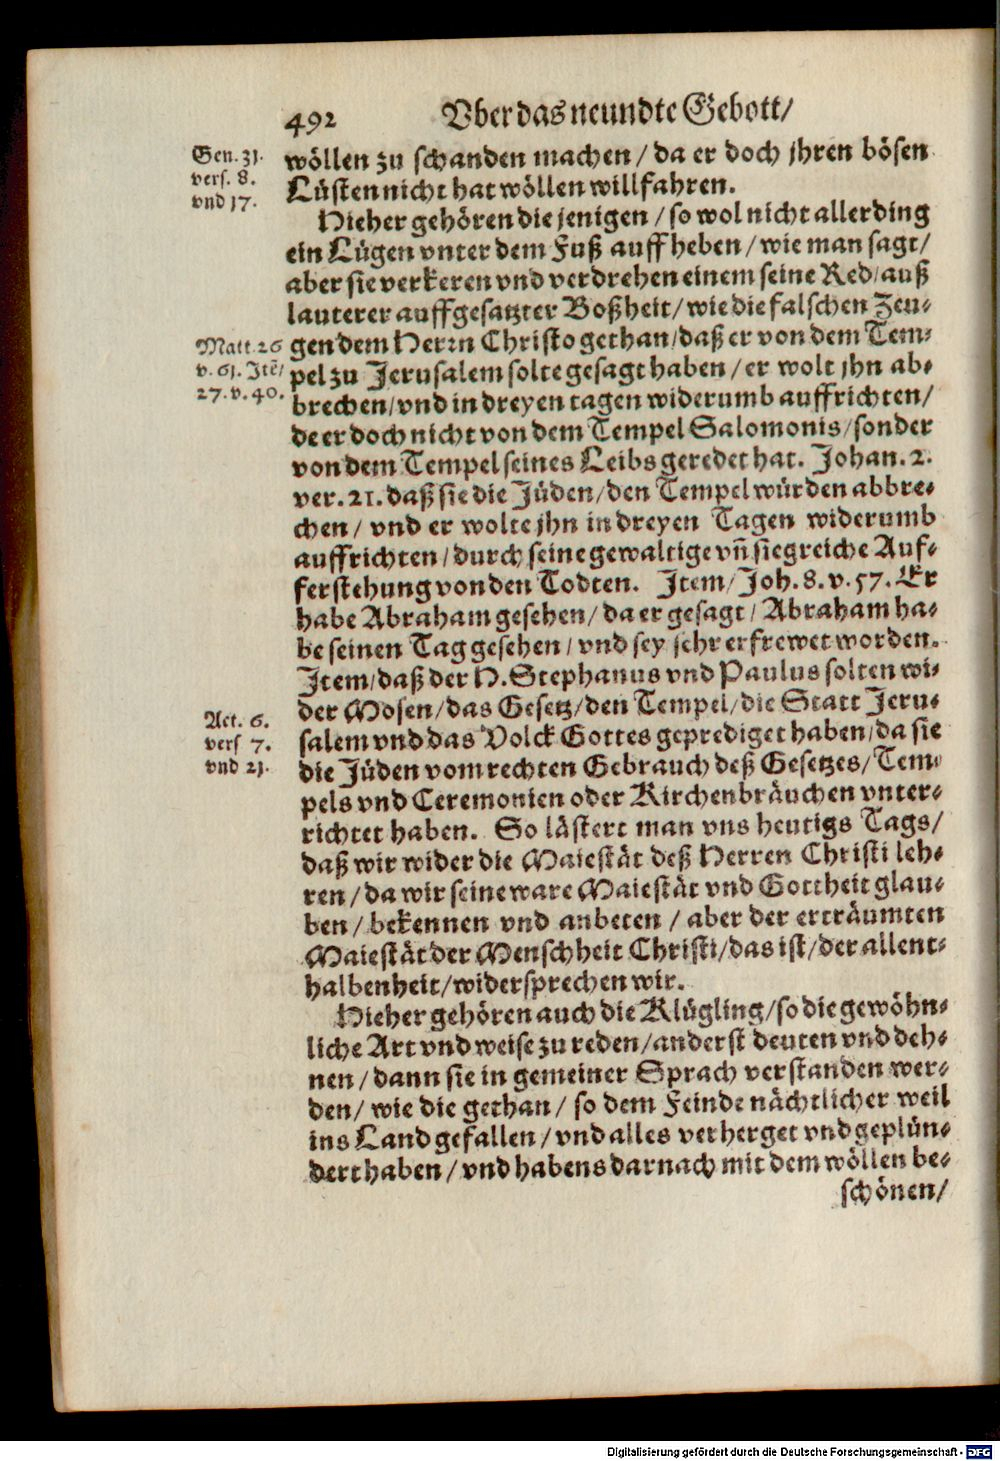 492 Vber das neundte Gebott/
Gen. 31.
vers. 8.
vnd 17.
wöllen zu schanden machen / da er doch jhren bösen
Lüsten nicht hat wöllen willfahren.
Hieher gehören die jenigen / so wol nicht allerding
ein Lügen vnter dem Fuß auffheben / wie man sagt /
aber sie verkeren vnd verdrehen einem seine Red / auß
lauterer auffgesatzter Boßheit / wie die falschen Zeu-
Matt. 26
v. 61. Itẽ /
27. v. 40.
gen dem Herrn Christo gethan / daß er von dem Tem-
pel zu Jerusalem solte gesagt haben / er wolt jhn ab-
brechen / vnd in dreyen tagen widerumb auffrichten /
de er doch nicht von dem Tempel Salomonis / sonder
von dem Tempel seines Leibs geredet hat. Johan. 2.
ver. 21. daß sie die Jüden / den Tempel würden abbre-
chen / vnd er wolte jhn in dreyen Tagen widerumb
auffrichten / durch seine gewaltige vñ siegreiche Auf-
ferstehung von den Todten. Item / Joh. 8. v. 57. Er
habe Abraham gesehen / da er gesagt / Abraham ha-
be seinen Tag gesehen / vnd sey sehr erfrewet worden.
Item / daß der H. Stephanus vnd Paulus solten wi-
Act. 6.
vers 7.
vnd 21.
der Mosen / das Gesetz / den Tempel / die Statt Jeru-
salem vnd das Volck Gottes geprediget haben / da sie
die Jüden vom rechten Gebrauch deß Gesetzes / Tem-
pels vnd Ceremonien oder Kirchenbräuchen vnter-
richtet haben. So lästert man vns heutigs Tags /
daß wir wider die Maiestät deß Herren Christi leh-
ren / da wir seine ware Maiestät vnd Gottheit glau-
ben / bekennen vnd anbeten / aber der erträumten
Maiestät der Menschheit Christi / das ist / der allent-
halbenheit / widersprechen wir.
Hieher gehören auch die Klügling / so die gewöhn-
liche Art vnd weise zu reden / anderst deuten vnd deh-
nen / dann sie in gemeiner Sprach verstanden wer-
den / wie die gethan / so dem Feinde nächtlicher weil
ins Land gefallen / vnd alles verherget vnd geplün-
dert haben / vnd habens darnach mit dem wöllen be-
schönen /
Digitalisierung gefördert durch die Deutsche Forschungsgemeinschaft - DFG